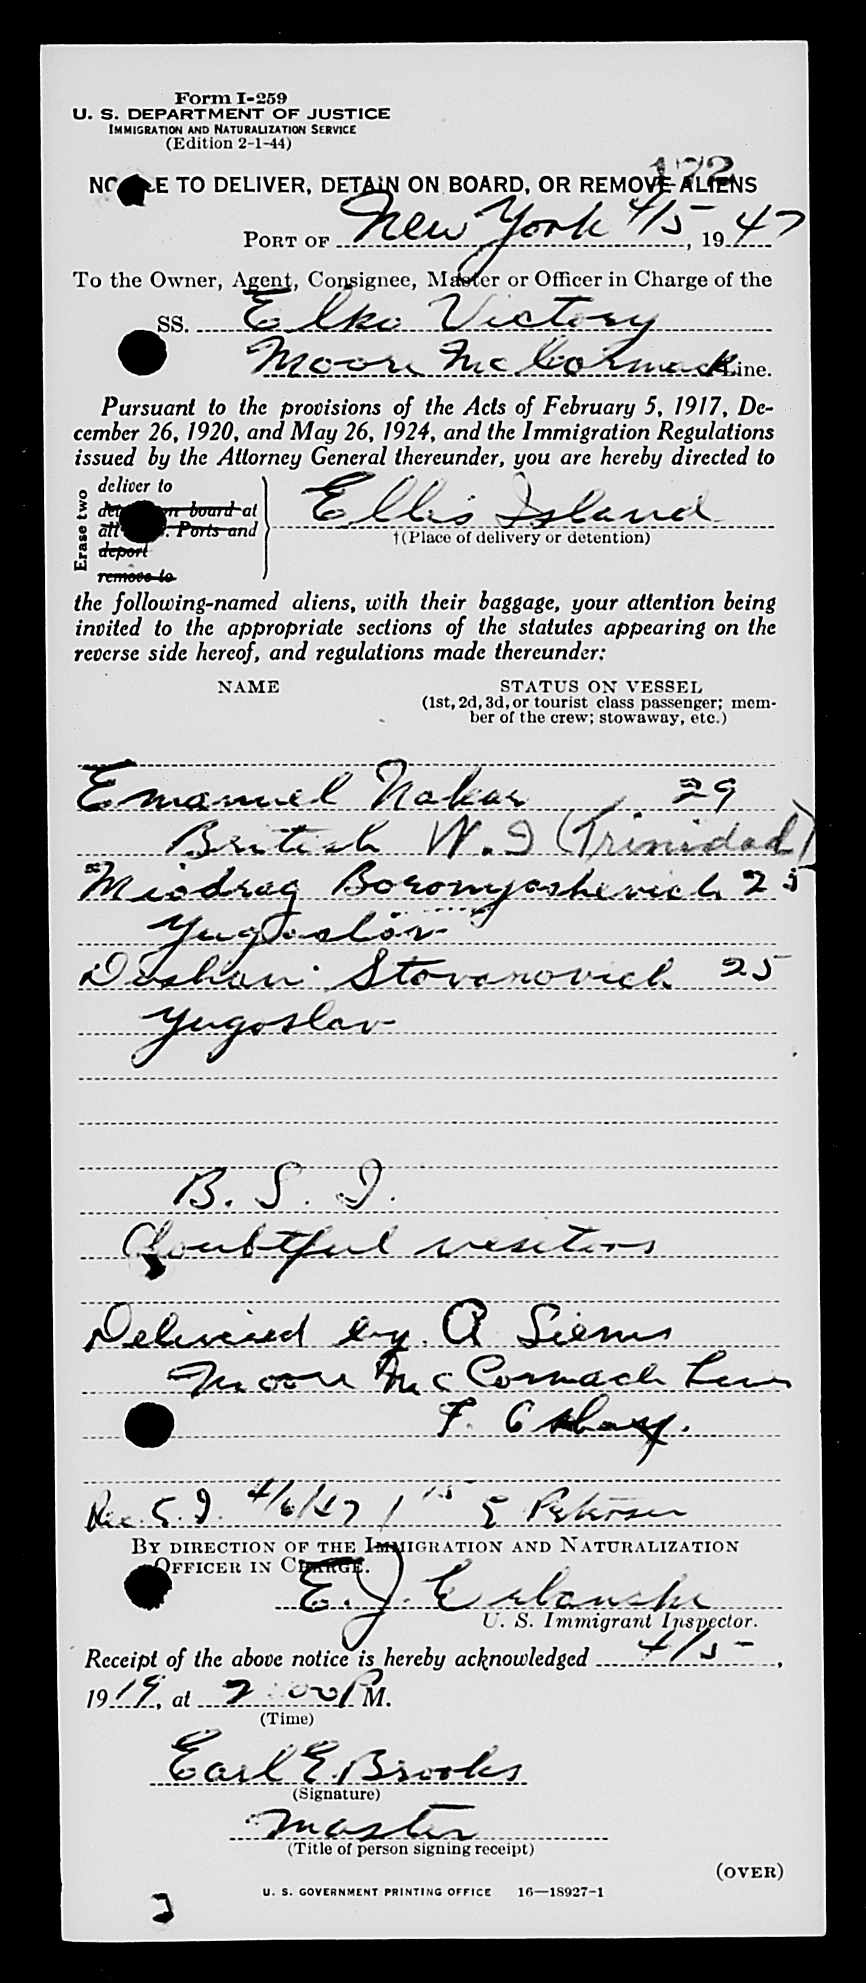 Form I-259
U. S. DEPARTMENT OF JUSTICE
IMMIGRATION AND NATURALIZATION SERVICE
(Edition 2-1-44)
172
TO DELIVER, DETAIN ON BOARD, OR REMOVE ALIENS
PORT OF New York 4/5, 1947
To the Owner, Agent, Consignee, Master or Officer in Charge of the
SS. Elko Victory
Moore McCormack Line.
Pursuant to the provisions of the Acts of February 5, 1917, De-
cember 26, 1920, and May 26, 1924, and the Immigration Regulations
issued by the Attorney General thereunder, you are hereby directed to
Erase two
deliver to
on board at
all Ports and
deport
remove to
Ellis Island
†(Place of delivery or detention)
the following-named aliens, with their baggage, your attention being
invited to the appropriate sections of the statutes appearing on the
reverse side hereof, and regulations made thereunder:
NAME STATUS ON VESSEL
(1st, 2d, 3d, or tourist class passenger; mem-
ber of the crew; stowaway, etc.)
Emanuel Nakar 29
British W. I (Trinidad)
Miodrag 25
Yugoslav
Dushan Stovanovich 25
Yugoslav
B. S. I.
Doubtful visitors
Delivered by A
Moore McCormack Lines
F.
Rec. E. I. 4/6/47 1 15 E Petersen
BY DIRECTION OF THE IMMIGRATION AND NATURALIZATION
OFFICER IN CHARGE.
E. J.
U. S. Immigrant Inspector.
Receipt of the above notice is hereby acknowledged 4/5,
19, at 2:00 P M.
(Time)
Earl E. Brooks
(Signature)
Master
(Title of person signing receipt)
(OVER)
U. S. GOVERNMENT PRINTING OFFICE 16—18927-1